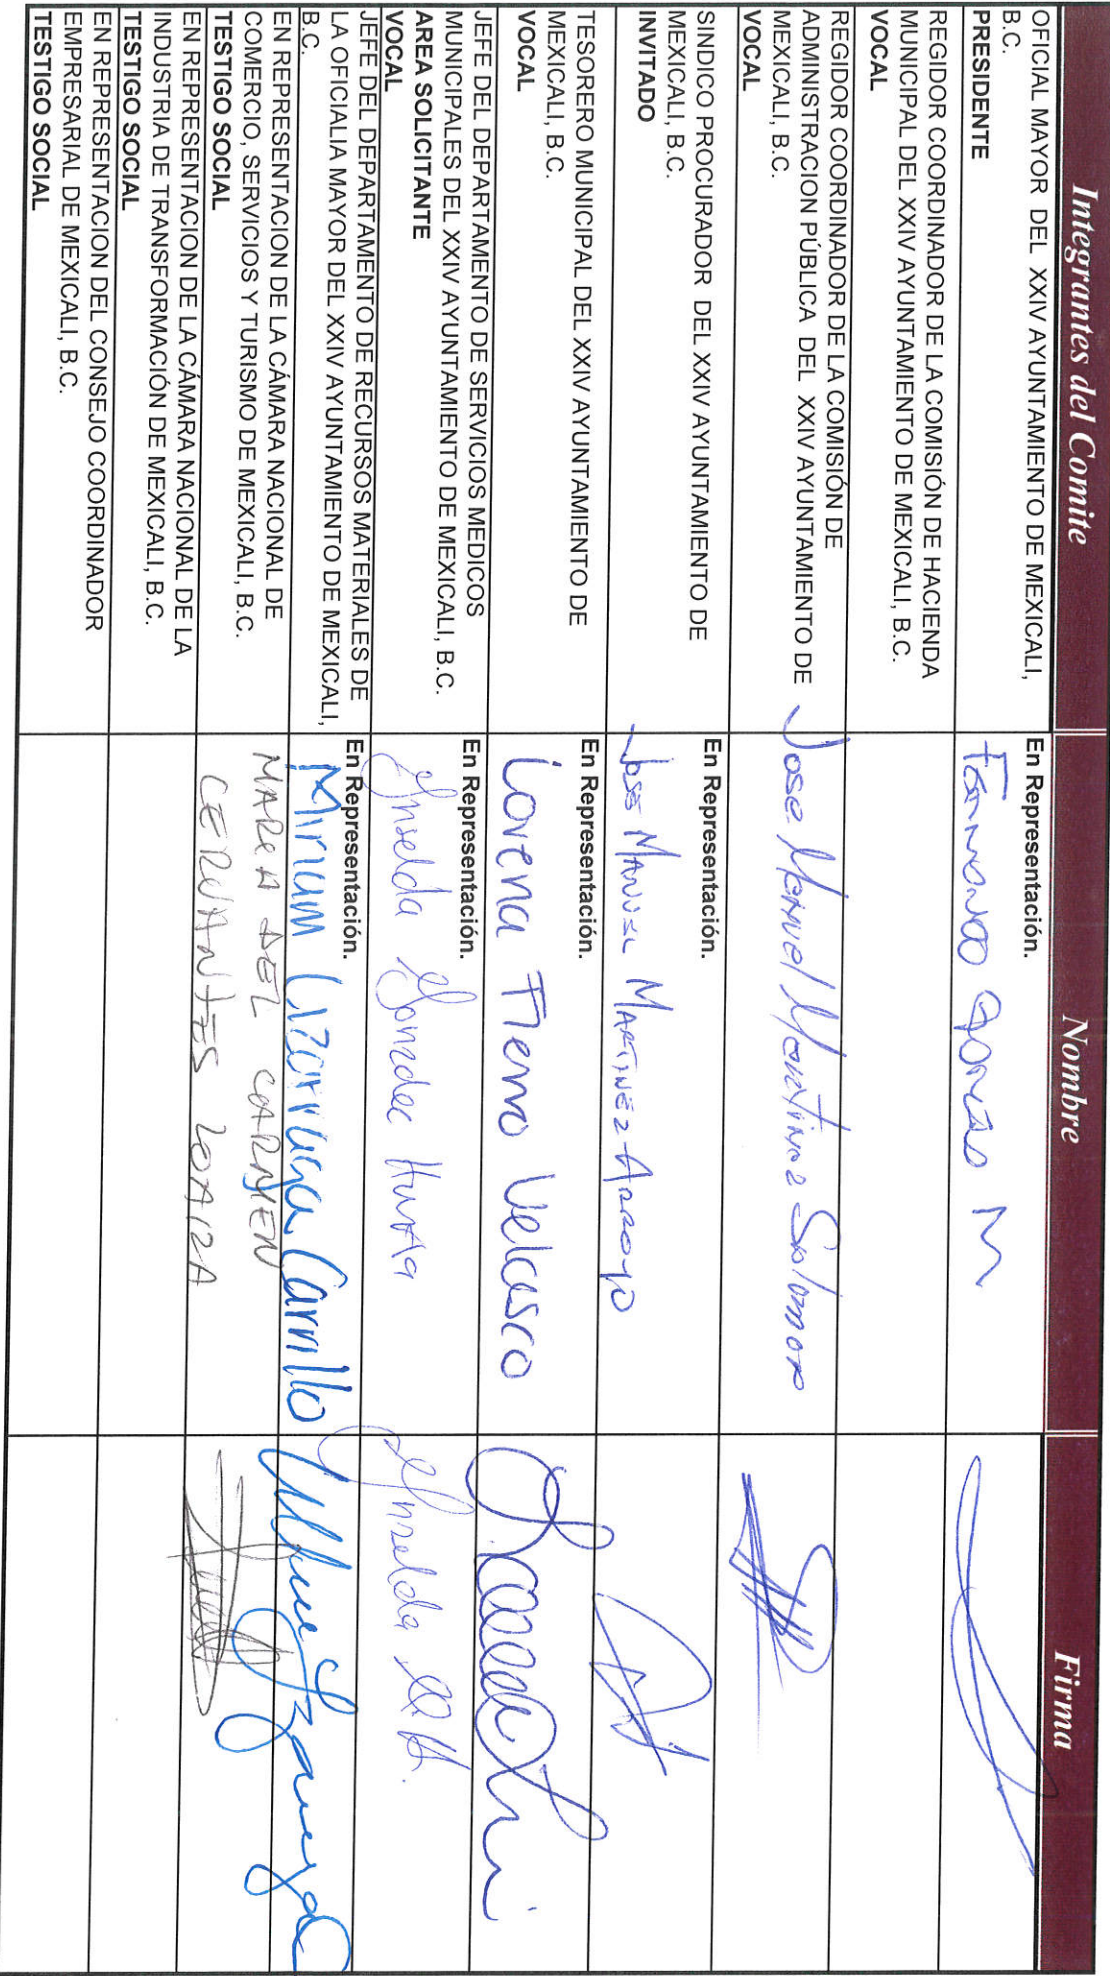 Integrantes del Comite
Nombre
Firma
OFICIAL MAYOR DEL XXIV AYUNTAMIENTO DE MEXICALI,
B.C.
PRESIDENTE
En Representación.
Fernando M
REGIDOR COORDINADOR DE LA COMISIÓN DE HACIENDA
MUNICIPAL DEL XXIV AYUNTAMIENTO DE MEXICALI, B.C.
VOCAL
REGIDOR COORDINADOR DE LA COMISIÓN DE
ADMINISTRACION PÚBLICA DEL XXIV AYUNTAMIENTO DE
MEXICALI, B.C.
VOCAL
Jose Manuel Martinez Salomon
SINDICO PROCURADOR DEL XXIV AYUNTAMIENTO DE
MEXICALI, B.C.
INVITADO
En Representación.
José Manuel Martínez Arroyo
TESORERO MUNICIPAL DEL XXIV AYUNTAMIENTO DE
MEXICALI, B.C.
VOCAL
En Representación.
Lorena Fierro Velasco
JEFE DEL DEPARTAMENTO DE SERVICIOS MEDICOS
MUNICIPALES DEL XXIV AYUNTAMIENTO DE MEXICALI, B.C.
AREA SOLICITANTE
VOCAL
En Representación.
Griselda Gonzalez
Griselda
JEFE DEL DEPARTAMENTO DE RECURSOS MATERIALES DE
LA OFICIALIA MAYOR DEL XXIV AYUNTAMIENTO DE MEXICALI,
B.C.
En Representación.
Miriam Lizarraga Carrillo
EN REPRESENTACION DE LA CÁMARA NACIONAL DE
COMERCIO, SERVICIOS Y TURISMO DE MEXICALI, B.C.
TESTIGO SOCIAL
MARIA DEL CARMEN
CERVANTES LOAIZA
EN REPRESENTACION DE LA CÁMARA NACIONAL DE LA
INDUSTRIA DE TRANSFORMACIÓN DE MEXICALI, B.C.
TESTIGO SOCIAL
EN REPRESENTACION DEL CONSEJO COORDINADOR
EMPRESARIAL DE MEXICALI, B.C.
TESTIGO SOCIAL